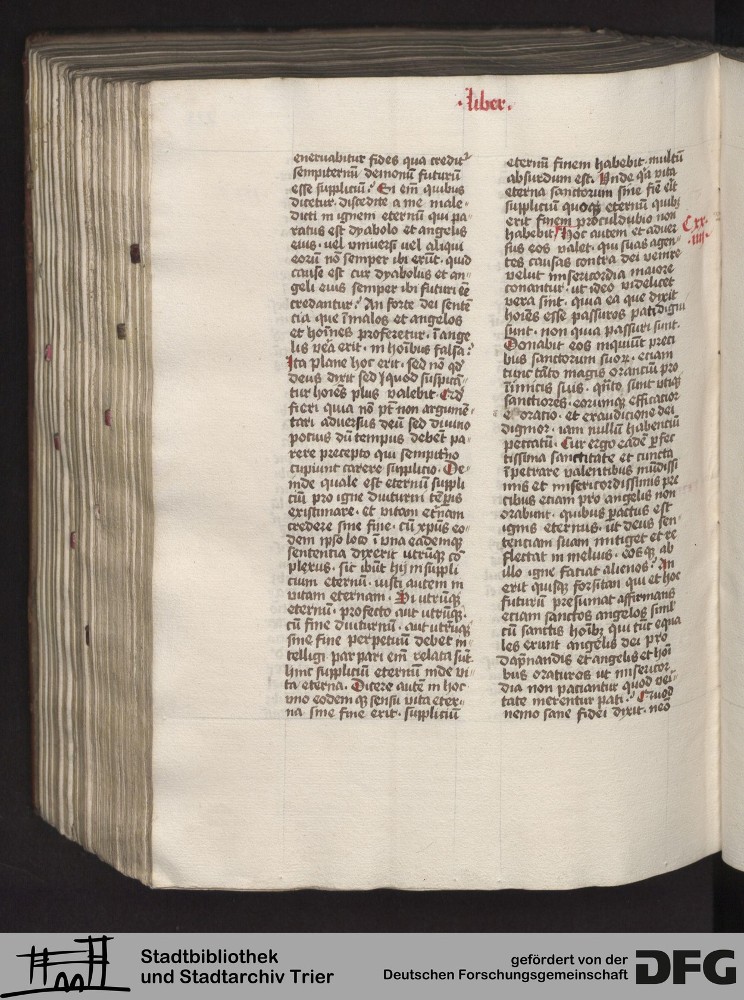 ·liber·
eneruabitur fides qua credit᷑
sempiternū demonū futurū
esse suppliciū? Si em̄ quibus
dicetur · discedite a me male-
dicti in ignem eternū qui pa-
ratus est dyabolo et angelis
eius · vel vniuersi vel aliqui
eorū nō semper ibi erūt · quid
cause est cur dyabolus et an-
geli eius semper ibi futuri eē
credantur? An forte dei sentē
cia que ī malos et angelos
et hoīnes proferetur · ī ange
lis vera erit · in hoībus falsa?
Ita plane hoc erit · sed nō qd
deus dixit sed quod suspicā-
tur hoīes plus valebit · Qd
fieri quia nō pt̄ non argumē-
tari aduersus deū sed diuino
pocius dū tempus debēt pa-
rere precepto qui sempit̄no
cupiunt carere supplicio · De-
inde quale est eternū suppli
ciū pro igne diuturni tēpis
existimare · et vitam et̄nam
credere sine fine · cū xpūs eo-
dem ipso loco ī vna eademq̄
sententia dixerit utrūq̄ cō
plexus · sic ibūt hij in suppli
cium eternū · iusti autem in
vitam eternam · Si utrūq̄
eternū · profecto aut utrūq̄
cū fine diuturnū · aut utrūq̄
sine fine perpetuū debet in-
telligi par pari em̄ relata sūt
hinc suppliciū eternū inde vi-
ta eterna · Dicere autē in hoc
vno eodem q̄ sensu vita eter-
na sine fine erit · suppliciū
eternū finem habebit · multū
absurdum est · Vnde q̄a vita
eterna sanctorum sine fīe erit
suppliciū quoq̄ eternū quibȝ
erit finem proculdubio non
habebit Hoc autem et aduer
Cxx
iiii·
sus eos valet · qui suas agen-
tes causas contra dei venire
velut misericordia maiore
conantur · ut ideo videlicet
vera sint · quia ea que dixit
hoīes esse passuros pati digni
sunt · non quia passuri sunt ·
Donabit eos inquiūt preci
bus sanctorum suoꝝ · etiam
tunc tāto magis orantiū pro
inimicis suis · q̄nto sunt utiq̄
sanctiores · eorumq̄ efficacior
oratio · et exaudicione dei
dignior · iam nullū habenciū
peccatū · Cur ergo eadē ꝑfec
tissima sanctitate et cuncta
īpetrare valentibus mūdissi
mis et misericordissimis pre
cibus etiam pro angelis non
orabunt · quibus ꝑactus est
ignis eternus · ut deus sen-
tentiam suam mitiget et re
flectat in melius · eos q̄ ab
illo igne faciat alienos? An
erit quisq̄ forsitan qui et hoc
futurū presumat affirmans
etiam sanctos angelos simł
cū sanctis hoībȝ qui tūc equa
les erunt angelis dei pro
dampnandis et angelis et hoī
bus oraturos ut misericor-
dia non paciantur quod vei-
tate merentur pati? Quod
nemo sane fidei dixit · neo
Stadtbibliothek
und Stadtarchiv Trier
gefördert von der
Deutschen Forschungsgemeinschaft
DFG